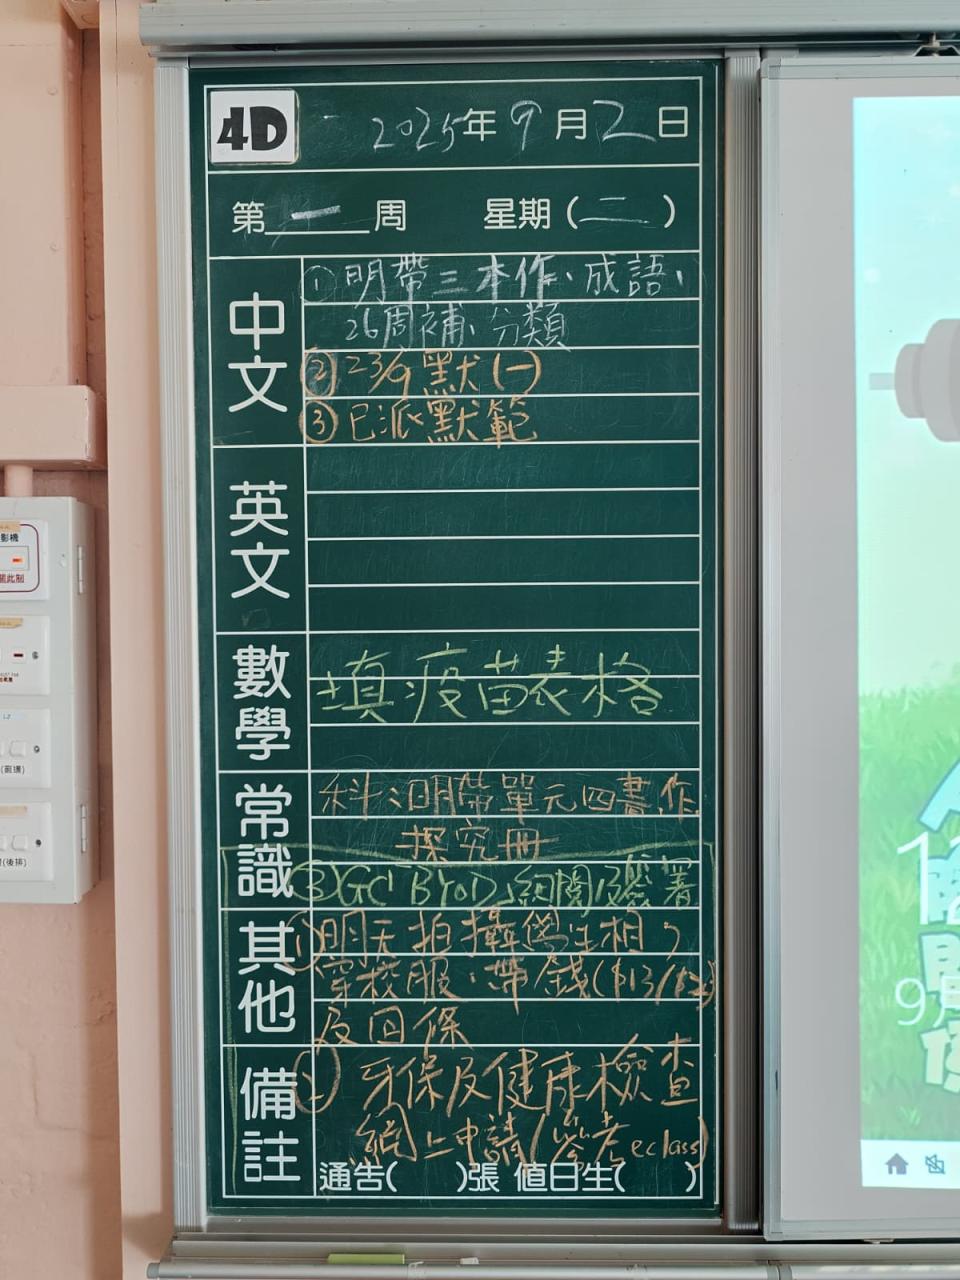 4D
2025年9月2日
第一周 星期(二)
中文
①明帶三本作、成語、
26周補、分類
②23/9默(一)
③已派默範
英文
數學
填疫苗表格
常識
科:明帶單元四書作
探究冊
③GC BYOD 細閱及簽署
其他
①明天拍攝學生相,
穿校服、帶錢($13/
及回條
備註
② 牙保及健康檢查
網上申請(參考eclass)
通告( )張 值日生( )
影機
(前排)
(後排)
9月